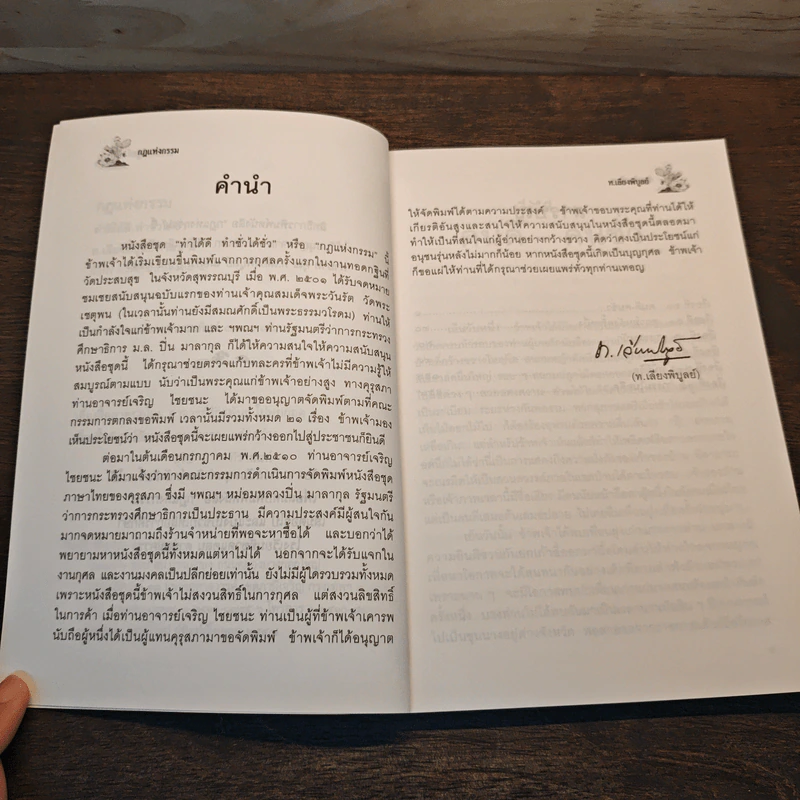 กฎแห่งกรรม
คำนำ
หนังสือชุด "ทำได้ดี ทำชั่วได้ชั่ว" หรือ "กฎแห่งกรรม" นี้
ข้าพเจ้าได้เริ่มเขียนขึ้นพิมพ์แจกการกุศลครั้งแรกในงานทอดกฐินที่
วัดประสบสุข ในจังหวัดสุพรรณบุรี เมื่อ พ.ศ. ๒๕๐๑ ได้รับจดหมาย
ชมเชยสนับสนุนฉบับแรกของท่านเจ้าคุณสมเด็จพระวันรัต วัดพระ
เชตุพน (ในเวลานั้นท่านยังมีสมณศักดิ์เป็นพระธรรมวโรดม) ท่านให้
เป็นกำลังใจแก่ข้าพเจ้ามาก และ ฯพณฯ ท่านรัฐมนตรีว่าการกระทรวง
ศึกษาธิการ ม.ล. ปิ่น มาลากุล ก็ได้ให้ความสนใจให้ความสนับสนุน
หนังสือชุดนี้ ได้กรุณาช่วยตรวจแก้บทละครที่ข้าพเจ้าไม่มีความรู้ให้
สมบูรณ์ตามแบบ นับว่าเป็นพระคุณแก่ข้าพเจ้าอย่างสูง ทางคุรุสภา
ท่านอาจารย์เจริญ ไชยชนะ ได้มาขออนุญาตจัดพิมพ์ตามที่คณะ
กรรมการตกลงขอพิมพ์ เวลานั้นมีรวมทั้งหมด ๒๑ เรื่อง ข้าพเจ้ามอง
เห็นประโยชน์ว่า หนังสือชุดนี้จะเผยแพร่กว้างออกไปสู่ประชาชนก็ยินดี
ต่อมาในต้นเดือนกรกฎาคม พ.ศ.๒๕๑๐ ท่านอาจารย์เจริญ
ไชยชนะ ได้มาแจ้งว่าทางคณะกรรมการดำเนินการจัดพิมพ์หนังสือชุด
ภาษาไทยของคุรุสภา ซึ่งมี ฯพณฯ หม่อมหลวงปิ่น มาลากุล รัฐมนตรี
ว่าการกระทรวงศึกษาธิการเป็นประธาน มีความประสงค์มีผู้สนใจกัน
มากจดหมายมาถามถึงร้านจำหน่ายที่พอจะหาซื้อได้ และบอกว่าได้
พยายามหาหนังสือชุดนี้ทั้งหมดแต่หาไม่ได้ นอกจากจะได้รับแจกใน
งานกุศล และงานมงคลเป็นปลีกย่อยเท่านั้น ยังไม่มีผู้ใดรวบรวมทั้งหมด
เพราะหนังสือชุดนี้ข้าพเจ้าไม่สงวนสิทธิ์ในการกุศล แต่สงวนลิขสิทธิ์
ในการค้า เมื่อท่านอาจารย์เจริญ ไชยชนะ ท่านเป็นผู้ที่ข้าพเจ้าเคารพ
นับถือผู้หนึ่งได้เป็นผู้แทนคุรุสภามาขอจัดพิมพ์ ข้าพเจ้าก็ได้อนุญาต
ท.เลียงพิบูลย์
ให้จัดพิมพ์ได้ตามความประสงค์ ข้าพเจ้าขอบพระคุณที่ท่านได้ให้
เกียรติอันสูงและสนใจให้ความสนับสนุนในหนังสือชุดนี้ตลอดมา
ทำให้เป็นที่สนใจแก่ผู้อ่านอย่างกว้างขวาง คิดว่าคงเป็นประโยชน์แก่
อนุชนรุ่นหลังไม่มากก็น้อย หากหนังสือชุดนี้เกิดเป็นบุญกุศล ข้าพเจ้า
ก็ขอแผ่ให้ท่านที่ได้กรุณาช่วยเผยแพร่ทั่วทุกท่านเทอญ
ท.เลียงพิบูลย์
(ท.เลียงพิบูลย์)